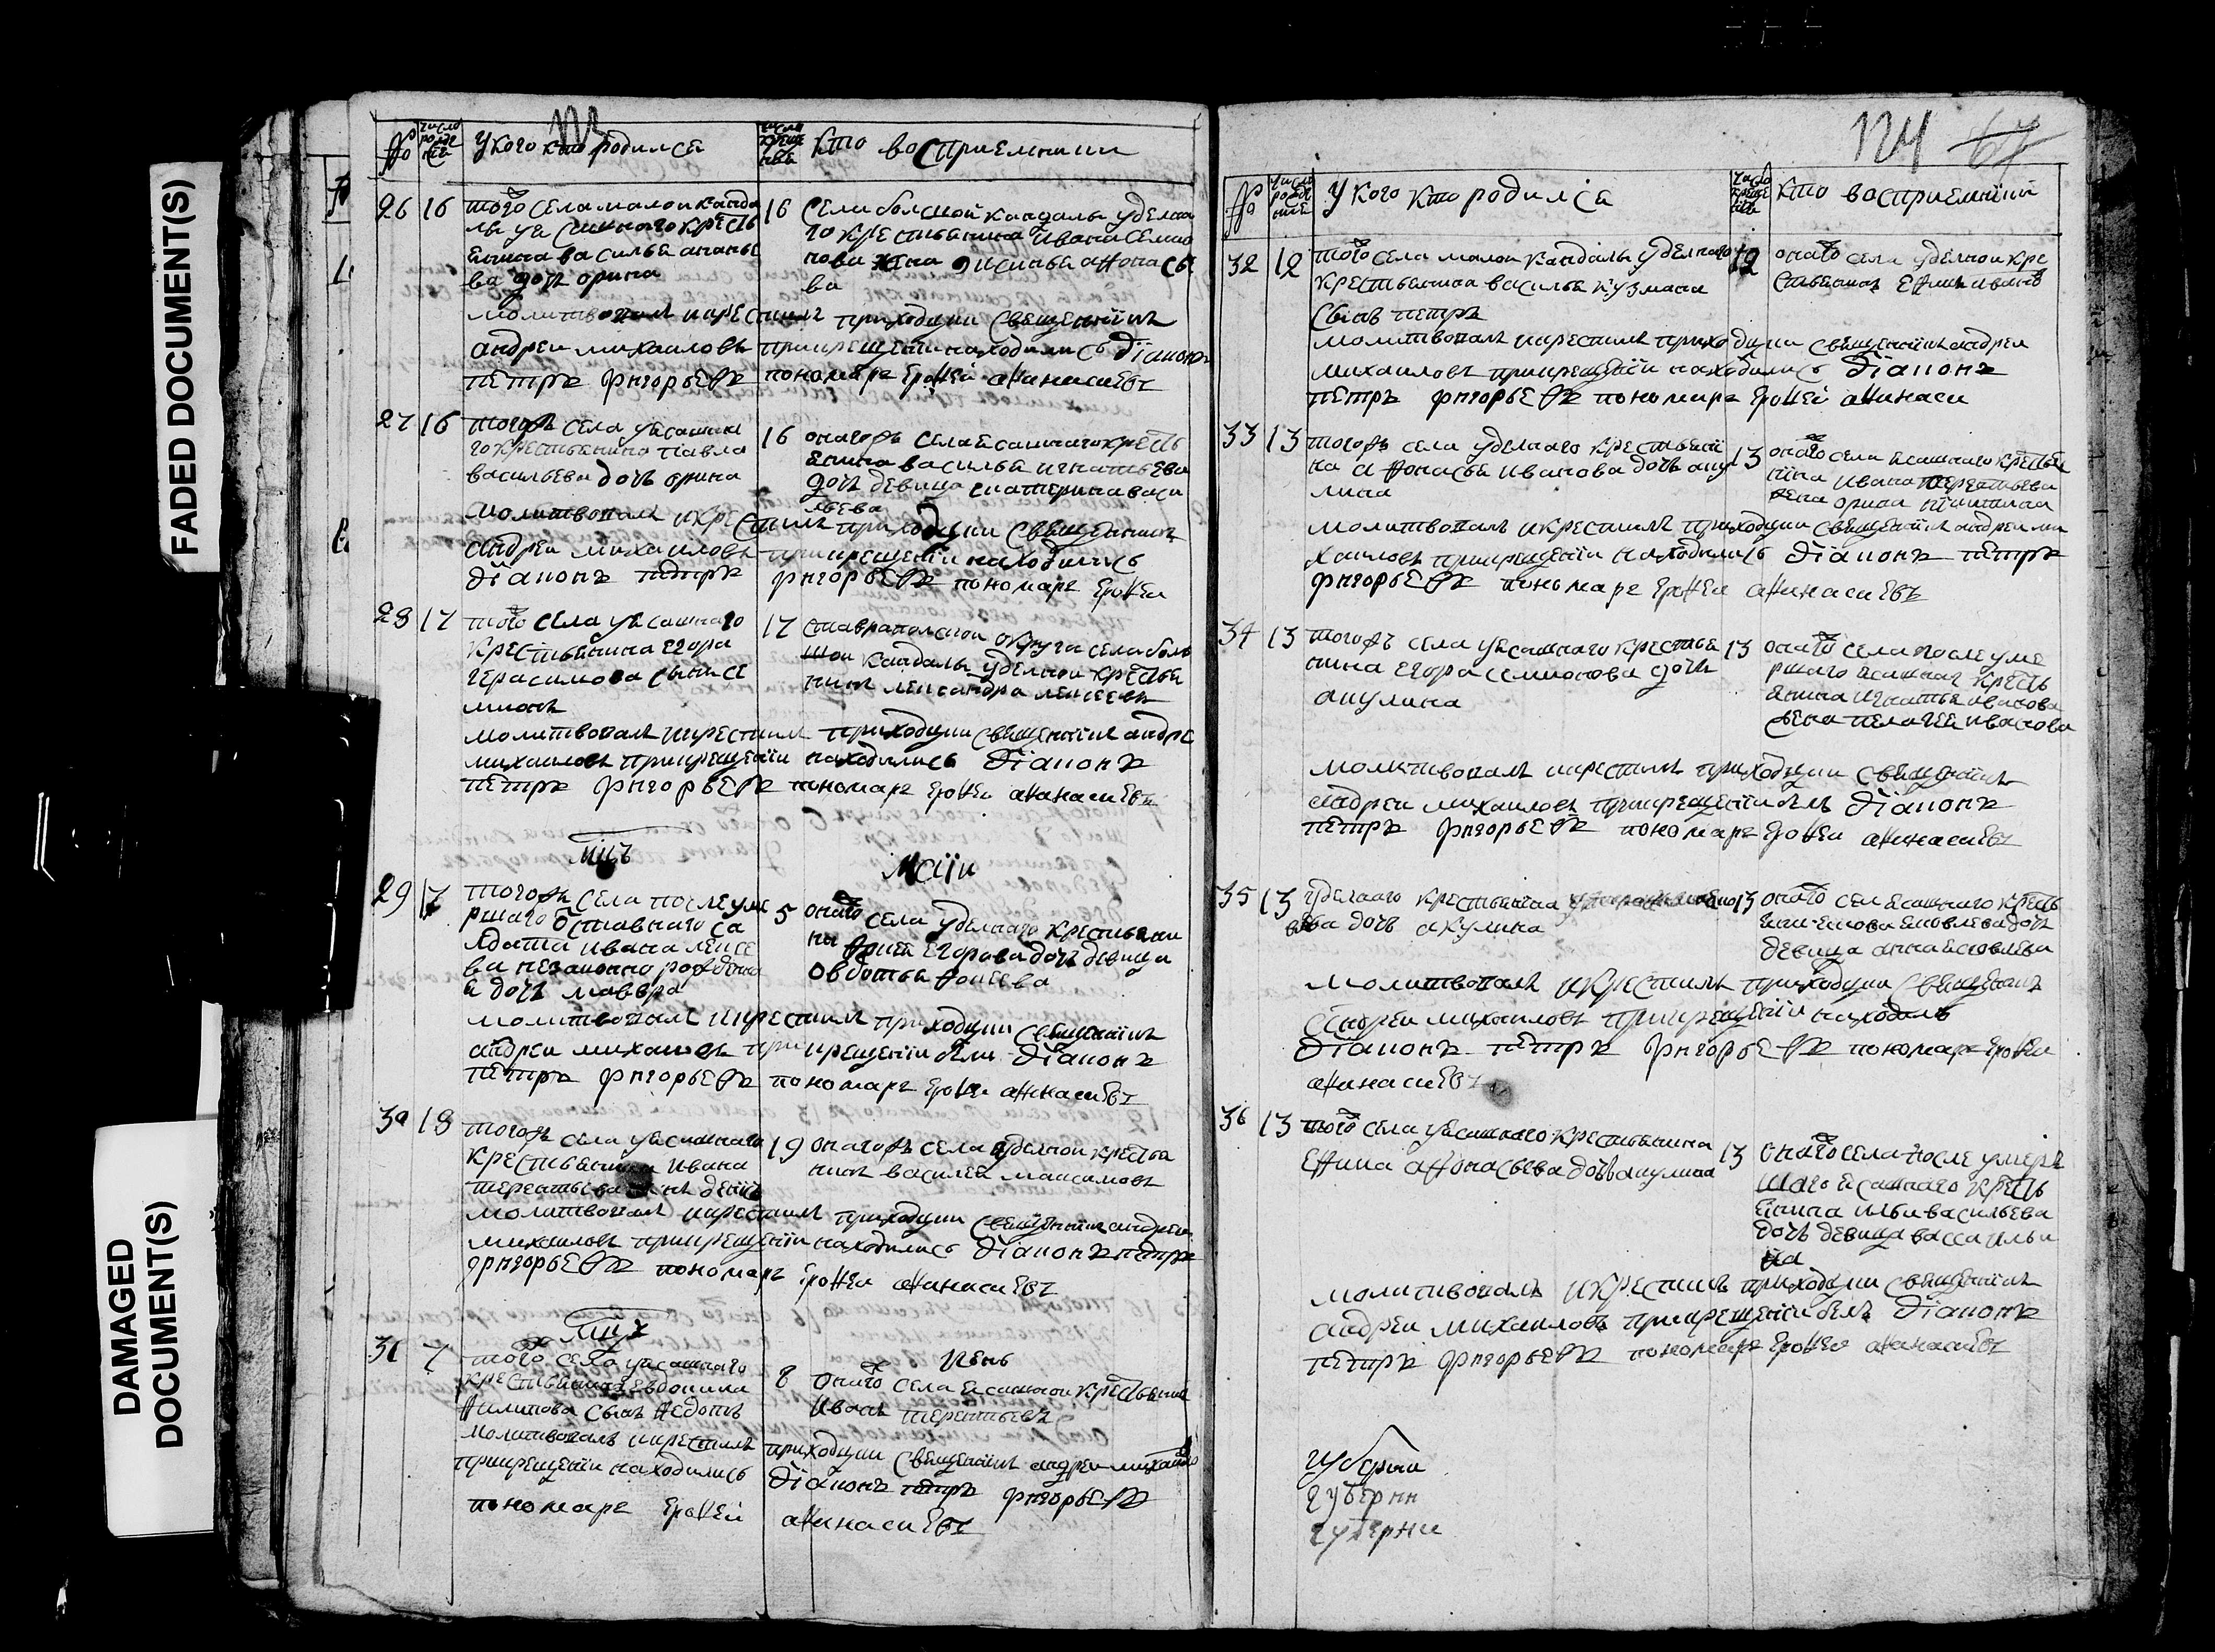 FADED DOCUMENT(S)
DAMAGED
DOCUMENT(S)
123
№
число рожде нїѧ
у кого кто родилса
число креще нїѧ
кто восприемники
26 16
того села малои канда
лы ꙗсашнаго кресть
ѧнина василья ананье
ва дочь орина
16
села болшой кандалы уделна
го крестьянина ивана семио
нова жена аѳонасье
ва
молитвовалъ и крестилъ приходцки священникъ
андреи михаиловъ при крещенїи находились дїаконъ
петръ григорьевъ пономарь ероѳеи аѳанасиевъ
27 16
тогожъ села ꙗсашна
го крестьянина павла
васильева дочь орина
16
оногожъ села ясашнаго кресть
янина василья игнатьева
дочь девица екатерина васи
льева
молитвовалъ и крестилъ приходцки священникъ
андреи михаиловъ при крещенїи находились
дїаконъ петръ григорьевъ пономарь ероѳеи
28 17
того села ꙗсашнаго
крестьянина егора
герасимова сынъ се
мионъ
17
ставрапольскои округи села боль
шои кандалы уделнои крестья
нинъ александра алексеевъ
молитвовалъ и крестилъ приходцки священникъ андре
михаиловъ при крещенїи находились дїаконъ
петръ григорьевъ пономарь ероѳеи аѳанасиевъ
мцъ
маїи
29
тогожъ села после уме
ршаго отставнаго са
лдата ивана алексе
ва незаконно рожденна
я дочь мавра
5
оного села уделнаго крестьяни
на егорова дочь девица
овдотья
молитвовалъ и крестилъ приходцки священникъ
андреи михаиловъ при крещенїи были дїаконъ
петръ григорьевъ пономарь ероѳеи аѳанасиевъ
30 18
тогожъ села ꙗсашнаго
крестьянина ивана
терентьева
19
оногожъ села уделнои крестья
нинъ василеи максимовъ
молитвовалъ и крестилъ приходцки священникъ андреи
михаиловъ при крещенїи находились дїаконъ петръ
григорьевъ пономарь ероѳеи аѳанасиевъ
мцъ
июнь
31 7
того села ꙗсашнаго
крестьянина евдокима
ѳилипова сынъ ѳедотъ
8
оного села ясашнои крестьянинъ
иванъ терентьевъ
молитвовалъ и крестилъ приходцки священникъ андреи михаило
при крещенїи находились дїаконъ петръ григорьевъ
пономарь ероѳеи аѳанасиевъ
124 67
№
число рожде нїе
у кого кто родилса
число креще нїѧ
кто восприемнїки
32 12
того села малои кандалы уделнаго
крестьянина василья кузмина
сынъ петръ
12
оного села уделнои кре
стьянинъ еѳимъ ивановъ
молитвовалъ и крестилъ приходцки священникъ андреи
михаиловъ при крещенїи находились дїаконъ
петръ григорьевъ пономарь ероѳеи аѳанаси
33 13
тогожъ села уделнаго крестьяни
на аѳонасья иванова дочь аку
лина
13
оного села ясашнаго крестья
нина ивана терентьева
жена орина никитина
молитвовалъ и крестилъ приходцки священникъ андреи ми
хаиловъ при крещенїи находились дїаконъ петръ
григорьевъ пономарь ероѳеи аѳанасиевъ
34 13
тогожъ села ꙗсашнаго крестья
нина егора семионова дочь
акулина
13
оного села после уме
ршаго ясашнаг кресть
янина игнатья иванова
жена пелагея иванова
молитвовалъ и крестилъ приходцки священникъ
андреи михаиловъ при крещенїи былъ дїаконъ
петръ григорьевъ пономарь ероѳеи аѳанасиевъ
35 13
уделнаго крестьянина
ва дочь акулина
13
оного села ясашнаго кресть
янина яковлева дочь
девица анна яковлева
молитвовалъ и крестилъ приходцки священникъ
андреи михаиловъ при крещенїи находилс
дїаконъ петръ григорьевъ пономарь ероѳеи
аѳанасиевъ
36 13
того села ꙗсашнаго крестьянина
еѳима аѳонасьева дочь акулина
13
оного села после умерь
шаго ясашнаго кресть
янина ильи васильева
дочь девица васса ильи
на
молитвовалъ и крестилъ приходцки священникъ
андреи михаиловъ при крещенїи былъ дїаконъ
петръ григорьевъ пономарь ероѳеи аѳанасиевъ
губерни
губерни
губерни